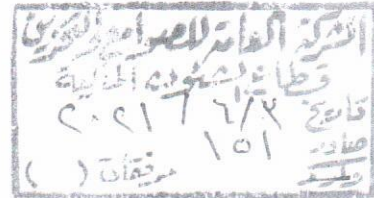 الشركة العامة للصوامع والتخزين
قطاع الشئون المالية
تاريخ ٣ / ٦ / ٢٠٢١
صادر ١٥١
وارد مرفقات ( )